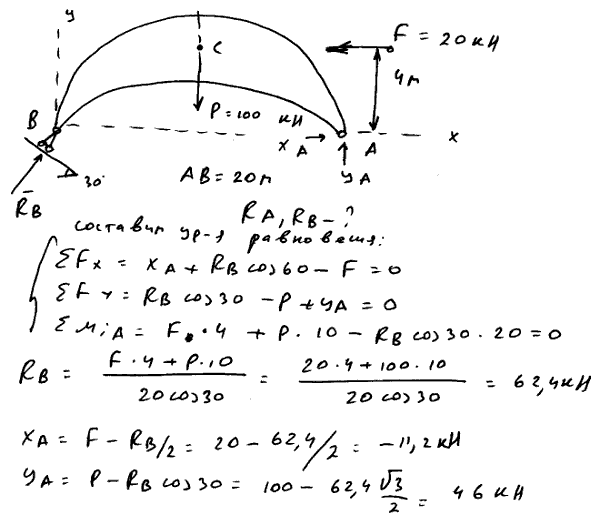 y
C
F = 20 кН
4 м
B
P = 100 кН
X_A
A
x
30°
AB = 20 м
Y_A
R̅_B
R_A, R_B - ?
составим ур-я равновесия:
ΣFx = X_A + R_B cos60 - F = 0
ΣFy = R_B cos30 - P + Y_A = 0
ΣM_iA = F · 4 + P · 10 - R_B cos30 · 20 = 0
R_B = (F · 4 + P · 10) / (20 cos30) = (20 · 4 + 100 · 10) / (20 cos30) = 62,4 кН
X_A = F - R_B/2 = 20 - 62,4/2 = -11,2 кН
Y_A = P - R_B cos30 = 100 - 62,4 √3/2 = 46 кН